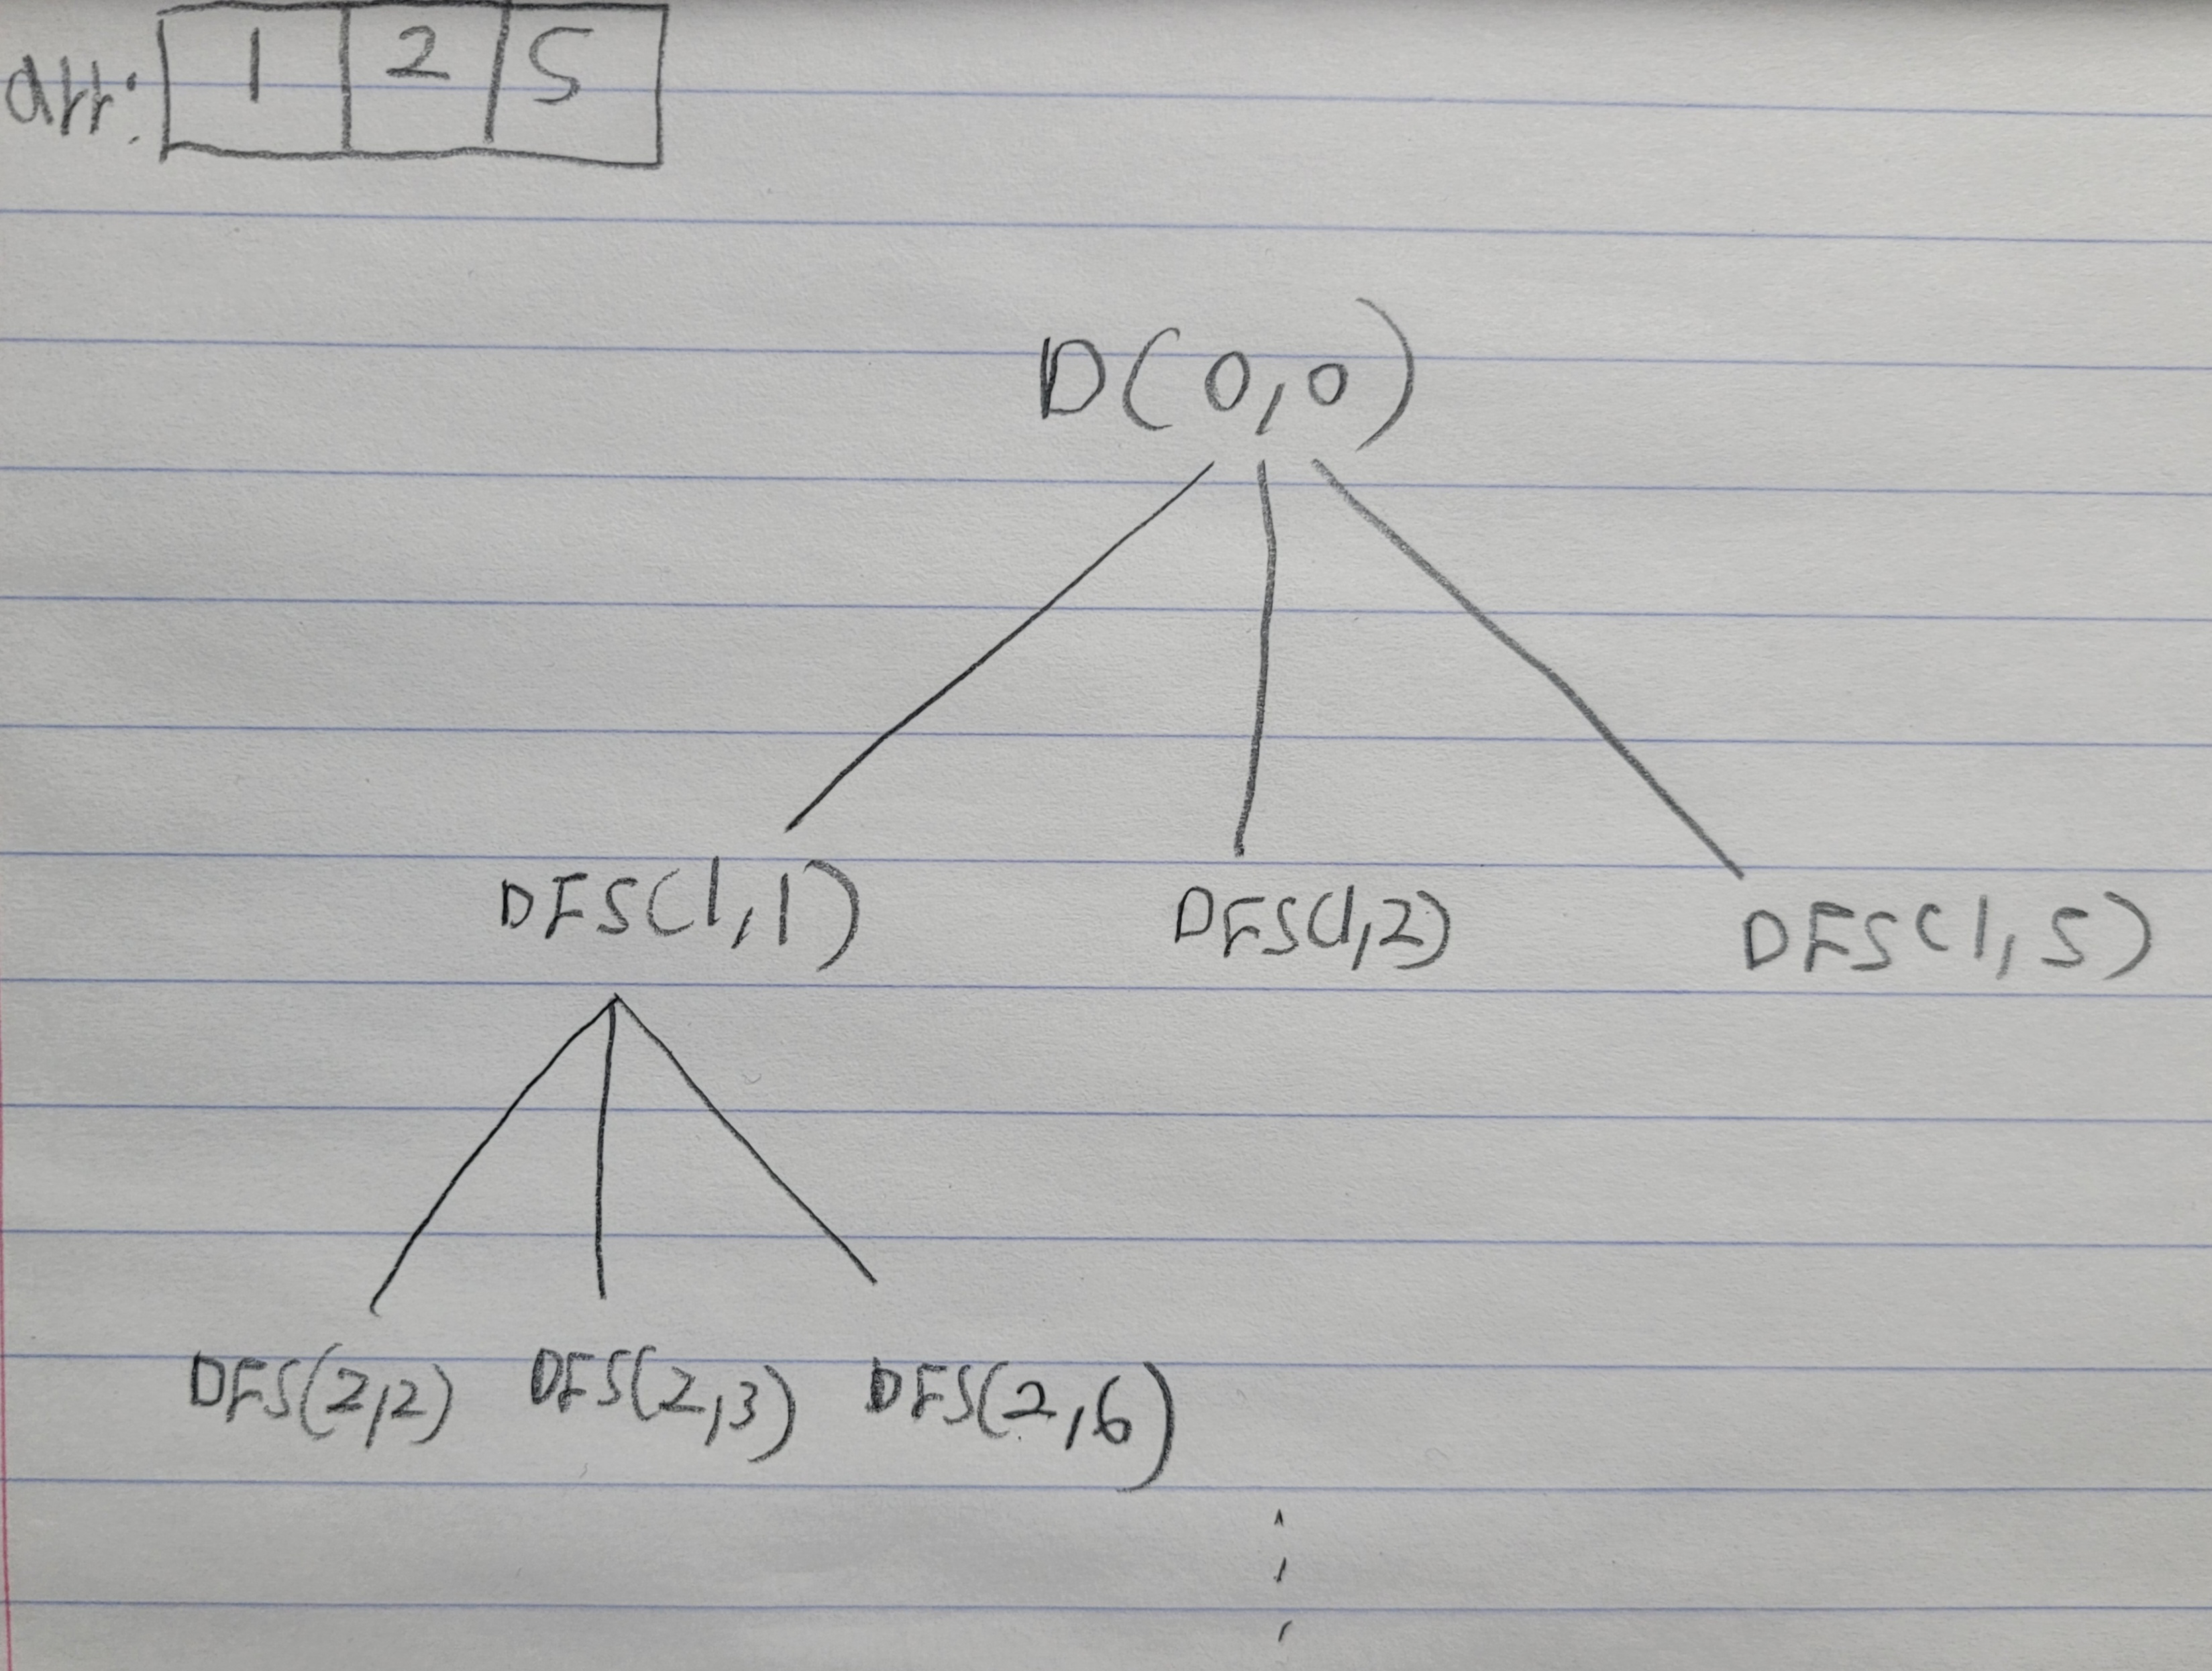 arr: 1 2 5
D(0,0)
DFS(1,1) DFS(1,2) DFS(1,5)
DFS(2,2) DFS(2,3) DFS(2,6)